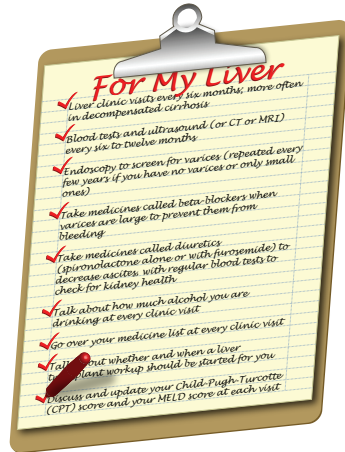 For My Liver
Liver clinic visits every six months; more often
in decompensated cirrhosis
Blood tests and ultrasound (or CT or MRI)
every six to twelve months
Endoscopy to screen for varices (repeated every
few years if you have no varices or only small
ones)
Take medicines called beta-blockers when
varices are large to prevent them from
bleeding
Take medicines called diuretics
(spironolactone alone or with furosemide) to
decrease ascites. with regular blood tests to
check for kidney health
Talk about how much alcohol you are
drinking at every clinic visit
Go over your medicine list at every clinic visit
whether and when a liver
workup should be started for you
Discuss and update your Child-Pugh-Turcotte
(CPT) score and your MELD score at each visit